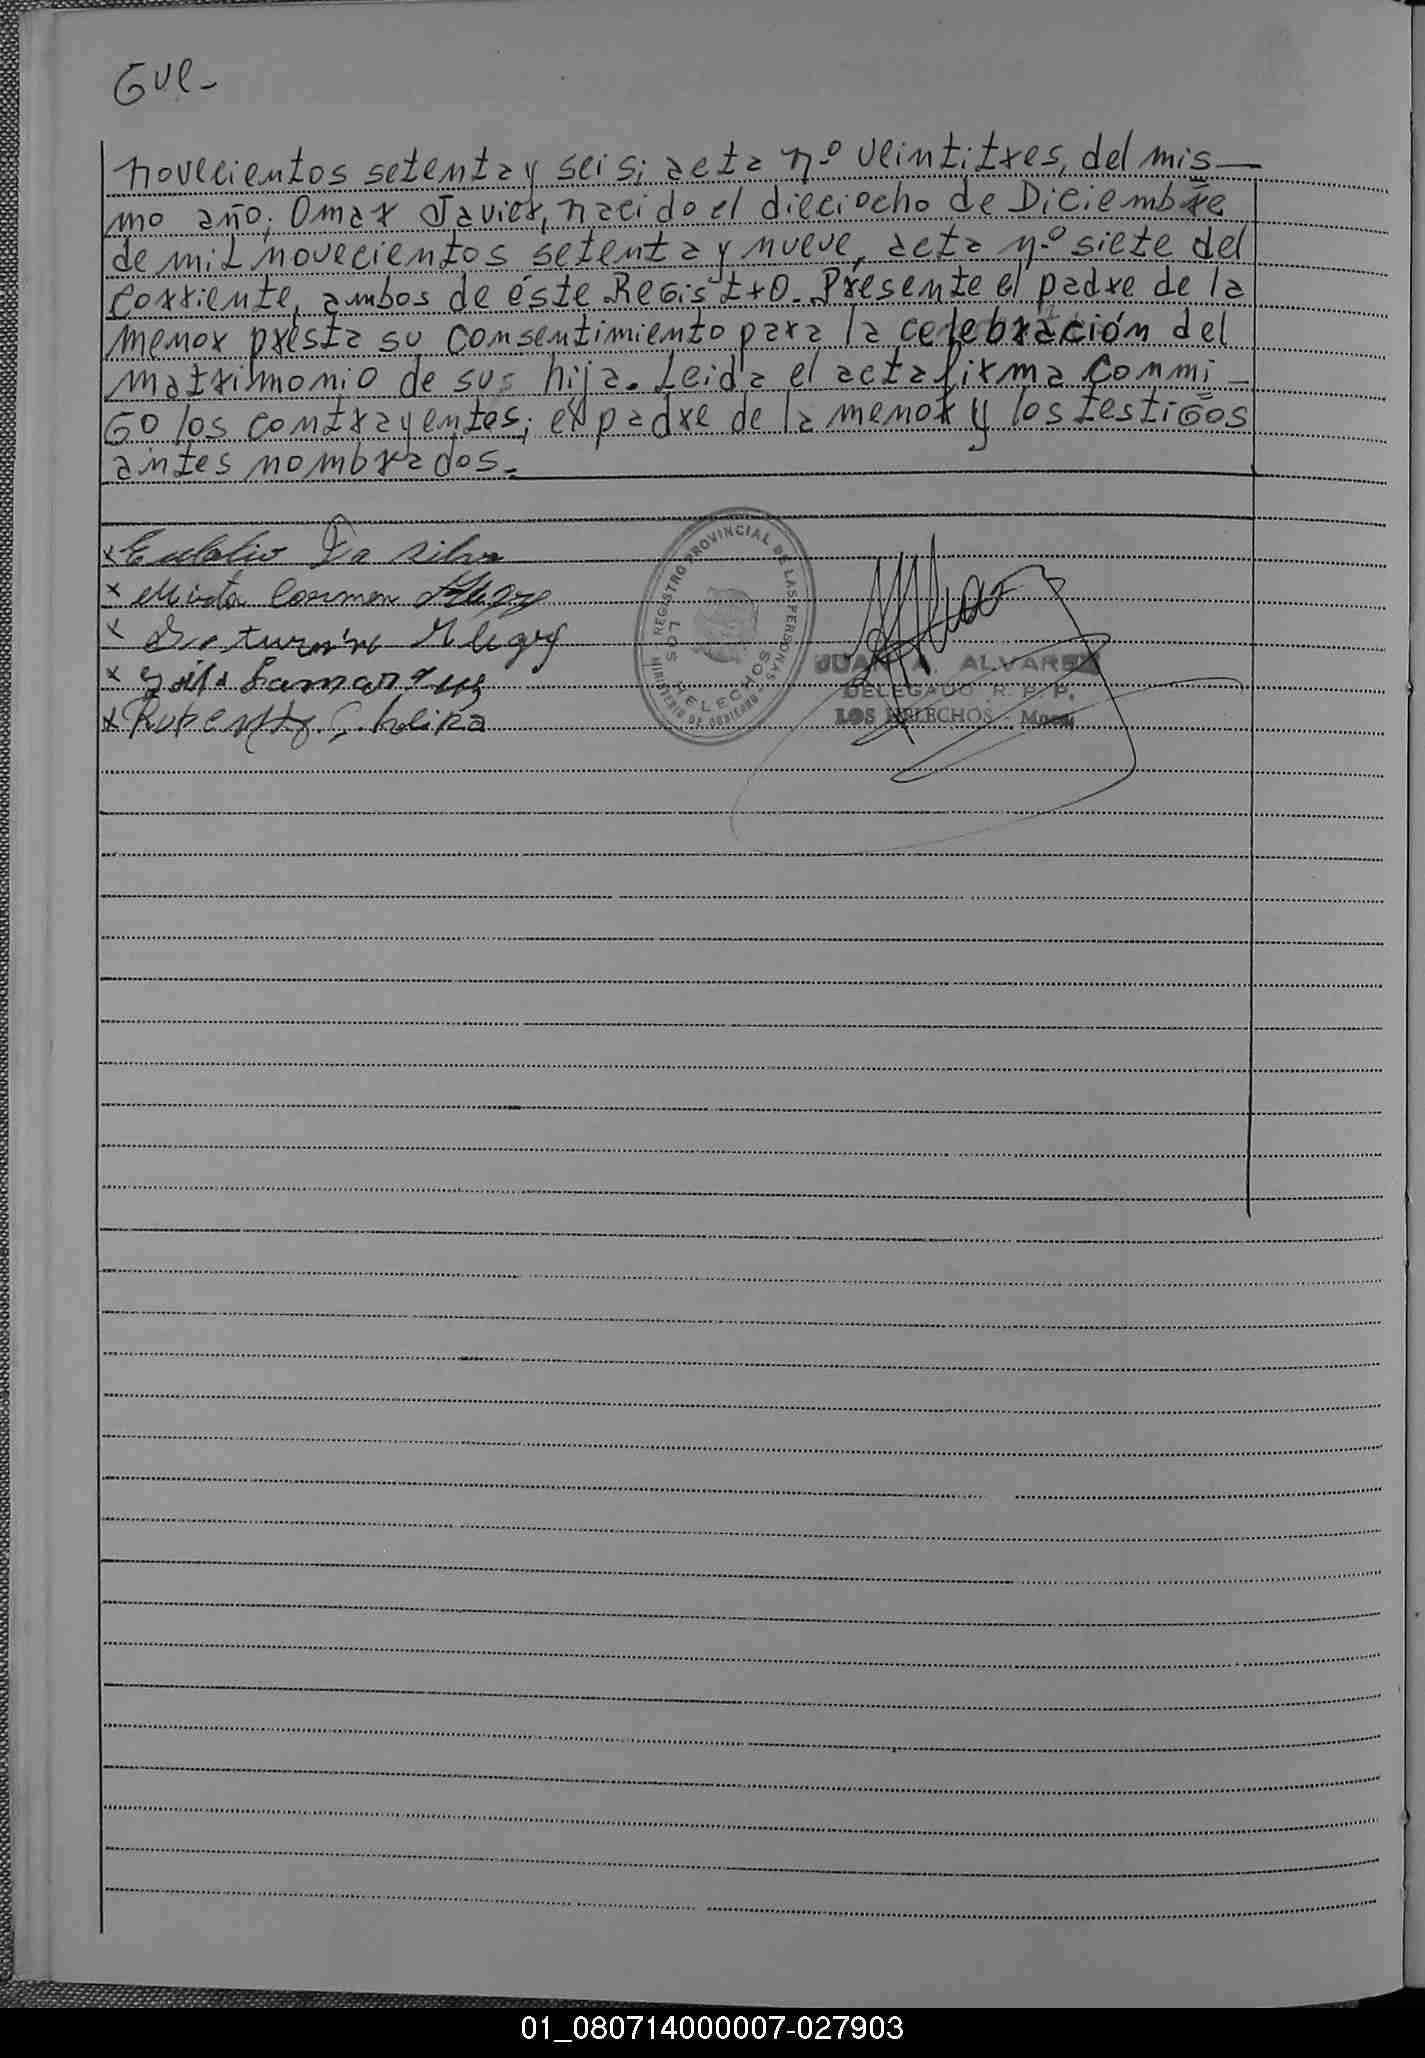 Gue-
novecientos setenta y seis; acta nº veintitres, del mis-
mo año; Omar Javier, nacido el dieciocho de Diciembre
de mil novecientos setenta y nueve, acta nº siete del
corriente, ambos de éste Registro. Presente el padre de la
menor presta su consentimiento para la celebración del
matrimonio de sus hija. Leida el acta firma conmi-
go los contrayentes; el padre de la menor y los testigos
antes nombrados.-
x Eudalio Da Silva
x Mirta Carmen
x
x
x
REGISTRO PROVINCIAL DE LAS PERSONAS
MINISTERIO DE GOBIERNO
LOS HELECHOS
JUAN A. ALVAREZ
DELEGADO R. P. P.
LOS HELECHOS - Mnes.
01_080714000007-027903